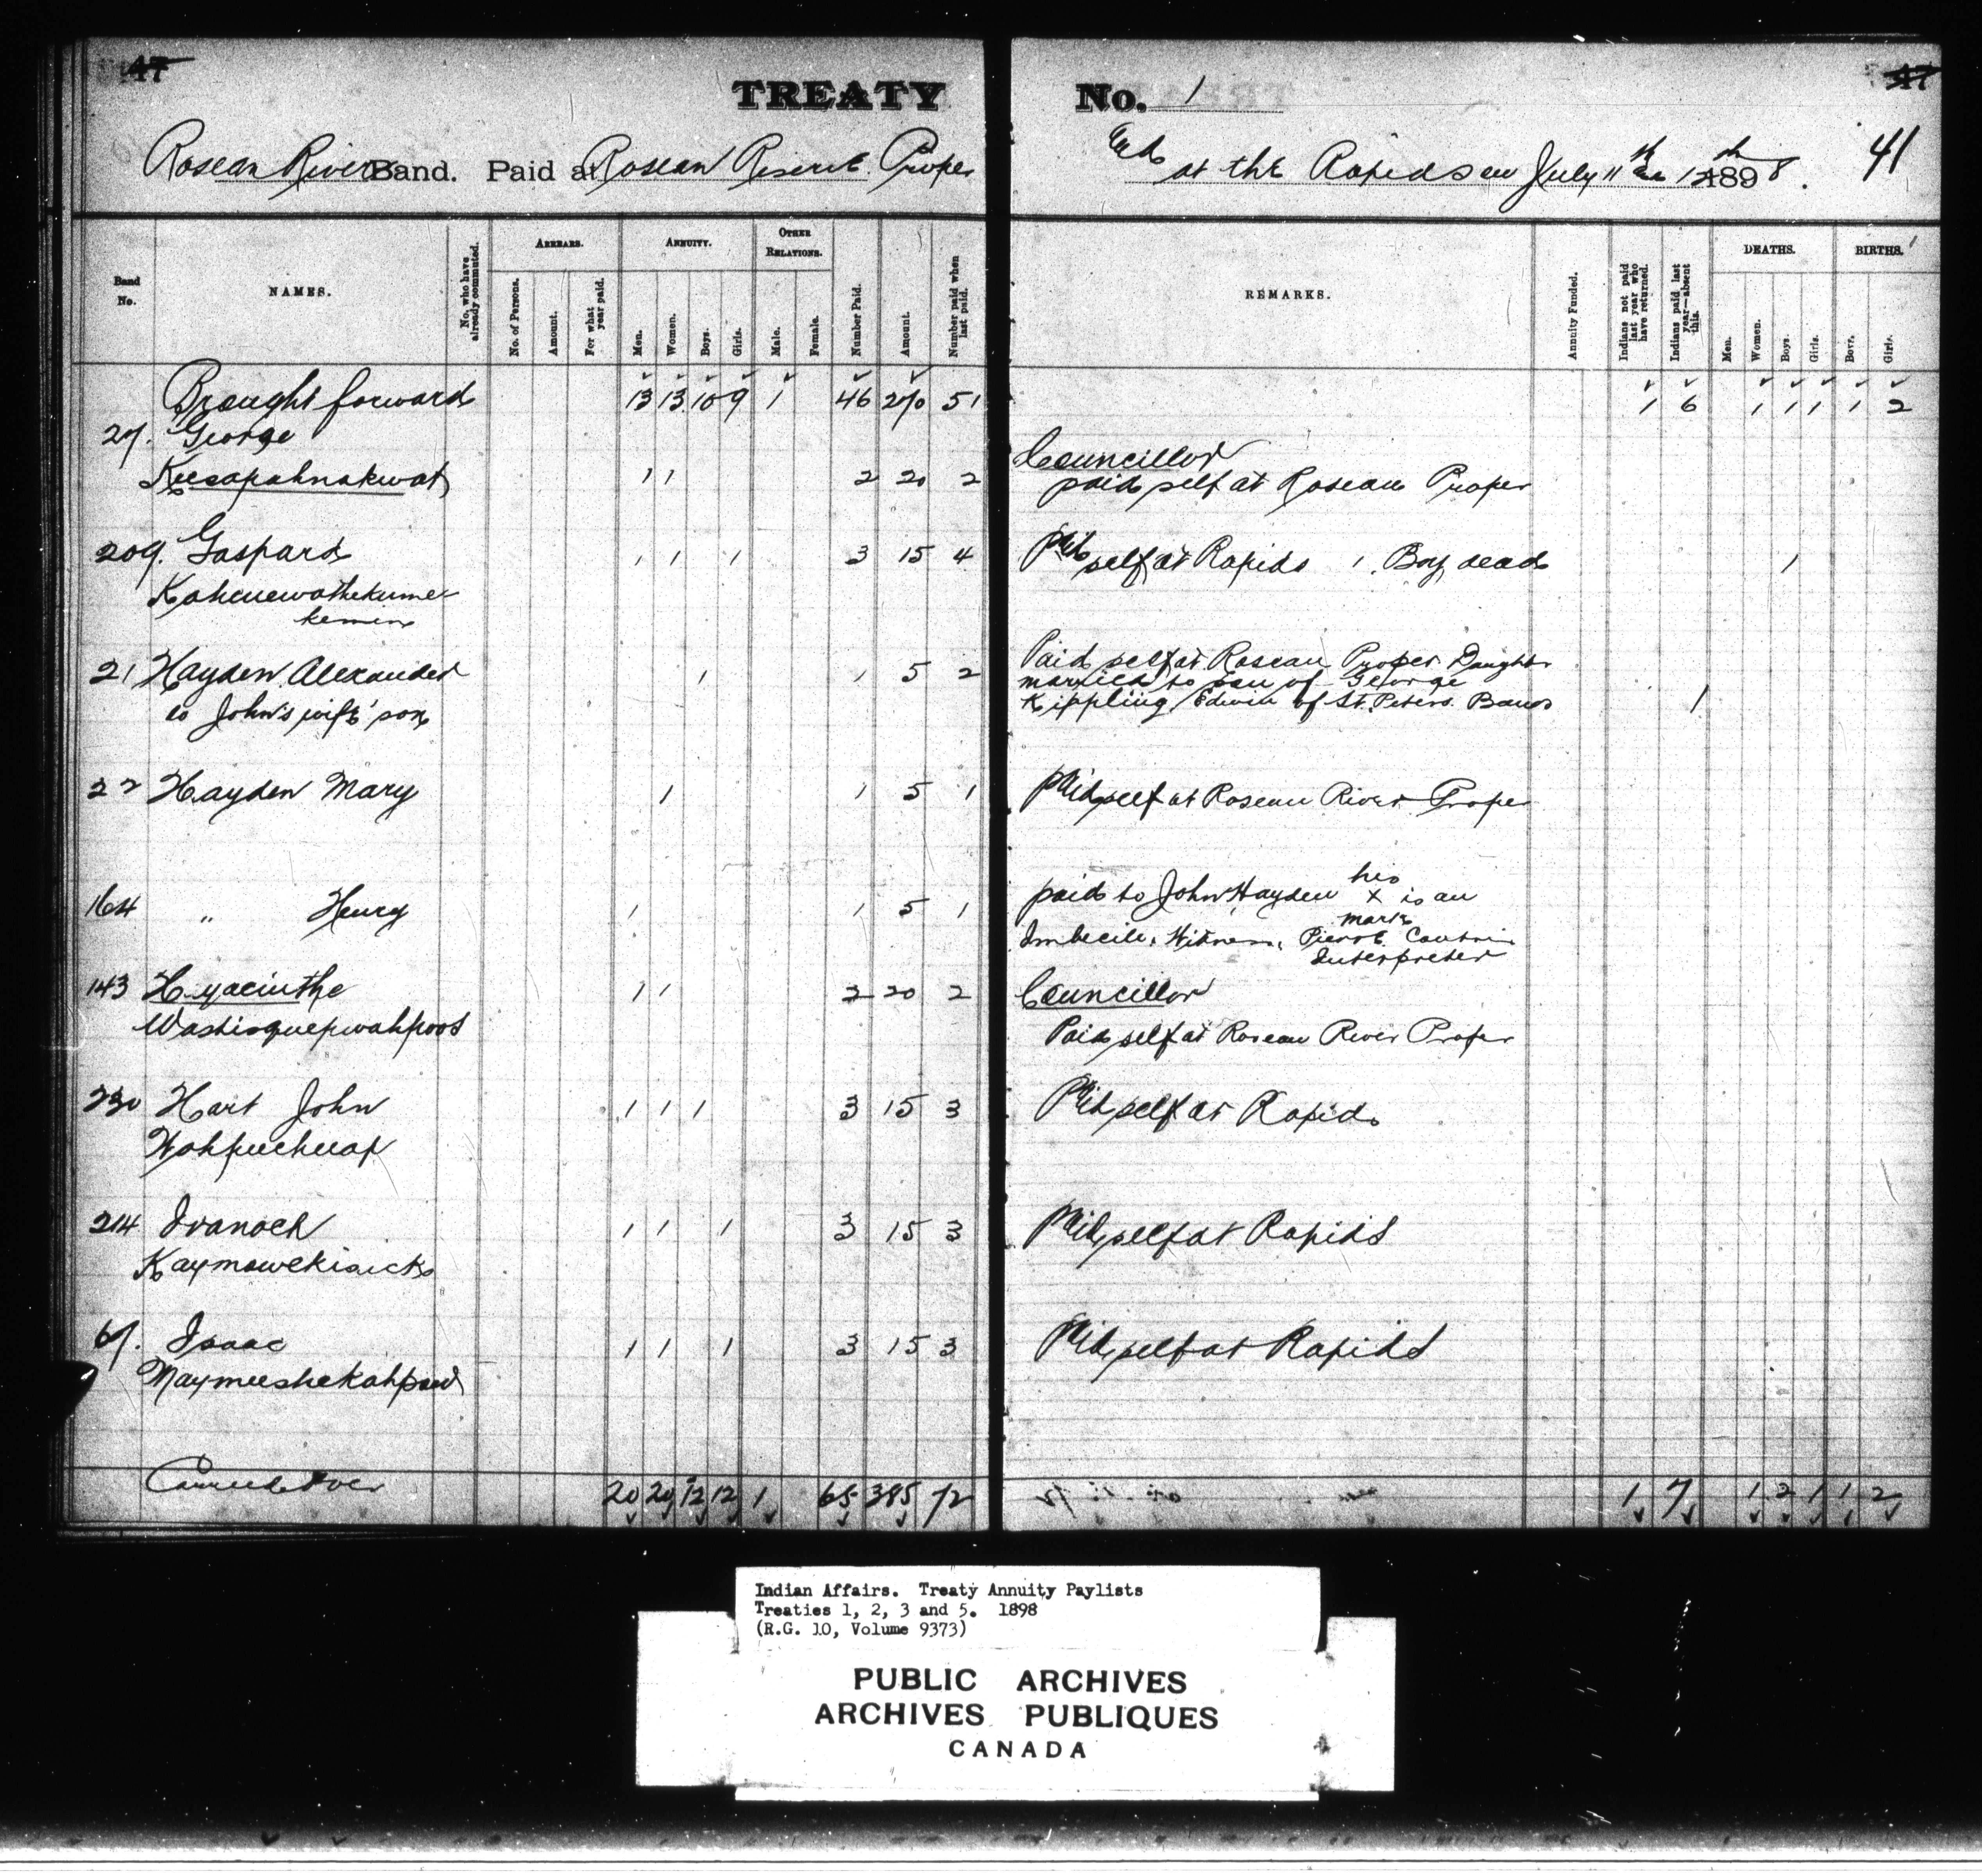 47
TREATY No. 1
47
Roseau River Band. Paid at Roseau Reserve Proper and at the Rapids on July 11th & 12th 1898.
41
Band No.
NAMES.
No. who have already commuted.
ARREARS.
No. of Persons.
Amount.
For what year paid.
ANNUITY.
Men.
Women.
Boys.
Girls.
OTHER RELATIONS.
Male.
Female.
Number Paid.
Amount.
Number paid when last paid.
REMARKS.
Annuity Funded.
Indians not paid last year who have returned.
Indians paid last year—absent this.
DEATHS.
Men.
Women.
Boys.
Girls.
BIRTHS.
Boys.
Girls.
Brought forward 13 13 10 9 1 46 270 51 1 6 1 1 1 1 2
27. George Councillor
Keesapahnakwat 1 1 2 20 2 paid self at Roseau Proper
209. Gaspard 1 1 1 3 15 4 Paid self at Rapids 1 Boy dead 1
Kahenewathekume
kemin
21 Hayden Alexander 1 1 5 2 Paid self at Roseau Proper Daughter
married to son of George
is John's wife' son Kippling Edwin of St. Peters Band 1
22 Hayden Mary 1 1 5 1 Paid self at Roseau River Proper
164 " Henry 1 1 5 1 paid to John Hayden his x mark is an
Imbecile. Witness, Pierre
Interpreter
143 Hyacinthe 1 1 2 20 2 Councillor
Washisquepwahpoos Paid self at Roseau River Proper
230 Hart John 1 1 1 3 15 3 Paid self at Rapids
Wahpuchuap
214 Ivanoch 1 1 1 3 15 3 Paid self at Rapids
Kaymowekisick
67. Isaac 1 1 1 3 15 3 Paid self at Rapids
Maymeeshekahpaw
Carried Over 20 20 12 12 1 65 385 72 1 7 1 2 1 1 2
Indian Affairs. Treaty Annuity Paylists
Treaties 1, 2, 3 and 5. 1898
(R.G. 10, Volume 9373)
PUBLIC ARCHIVES
ARCHIVES PUBLIQUES
CANADA